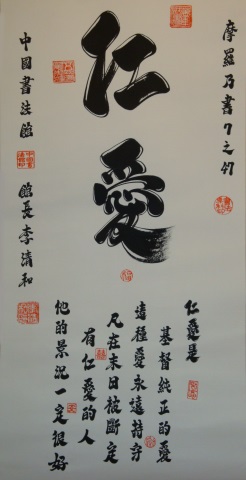 摩羅乃書7之47
仁愛
仁愛是
基督純正的愛
這種愛永遠持守
凡在末日被斷定
有仁愛的人
他的景況一定很好
中國書法館 館長李清和